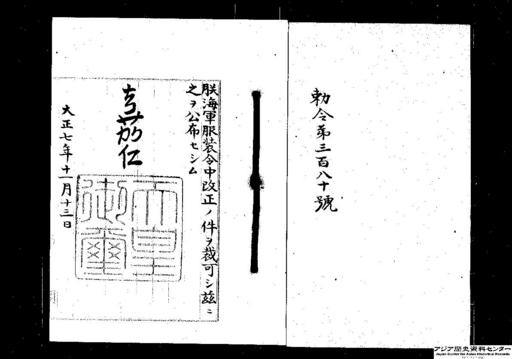 勅令第三百八十號
朕海軍服装令中改正ノ件ヲ裁可シ茲ニ
之ヲ公布セシム
嘉仁
天皇
御璽
大正七年十一月十三日
アジア歴史資料センター
Japan Center for Asian Historical Records